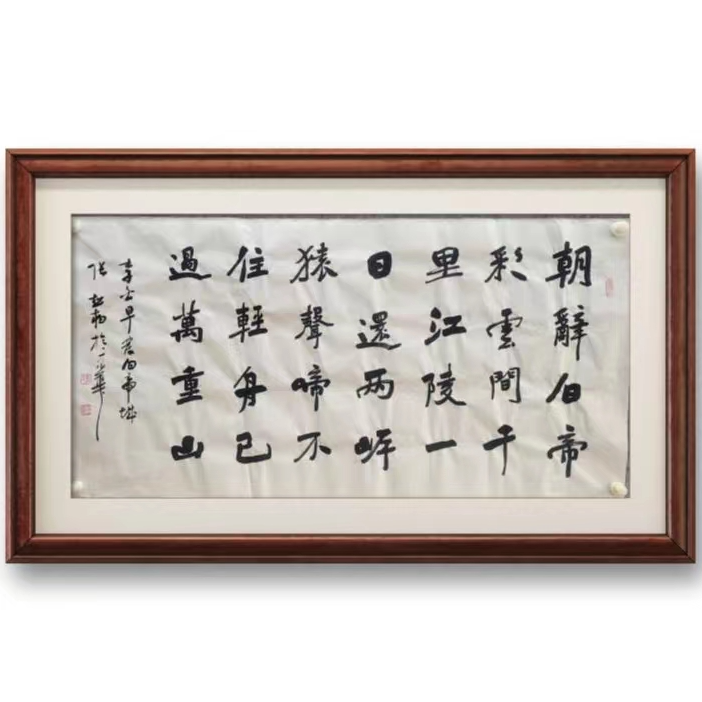 朝辭白帝
彩雲間千
里江陵一
日還两岸
猿聲啼不
住輕舟已
過萬重山
李白早发白帝城